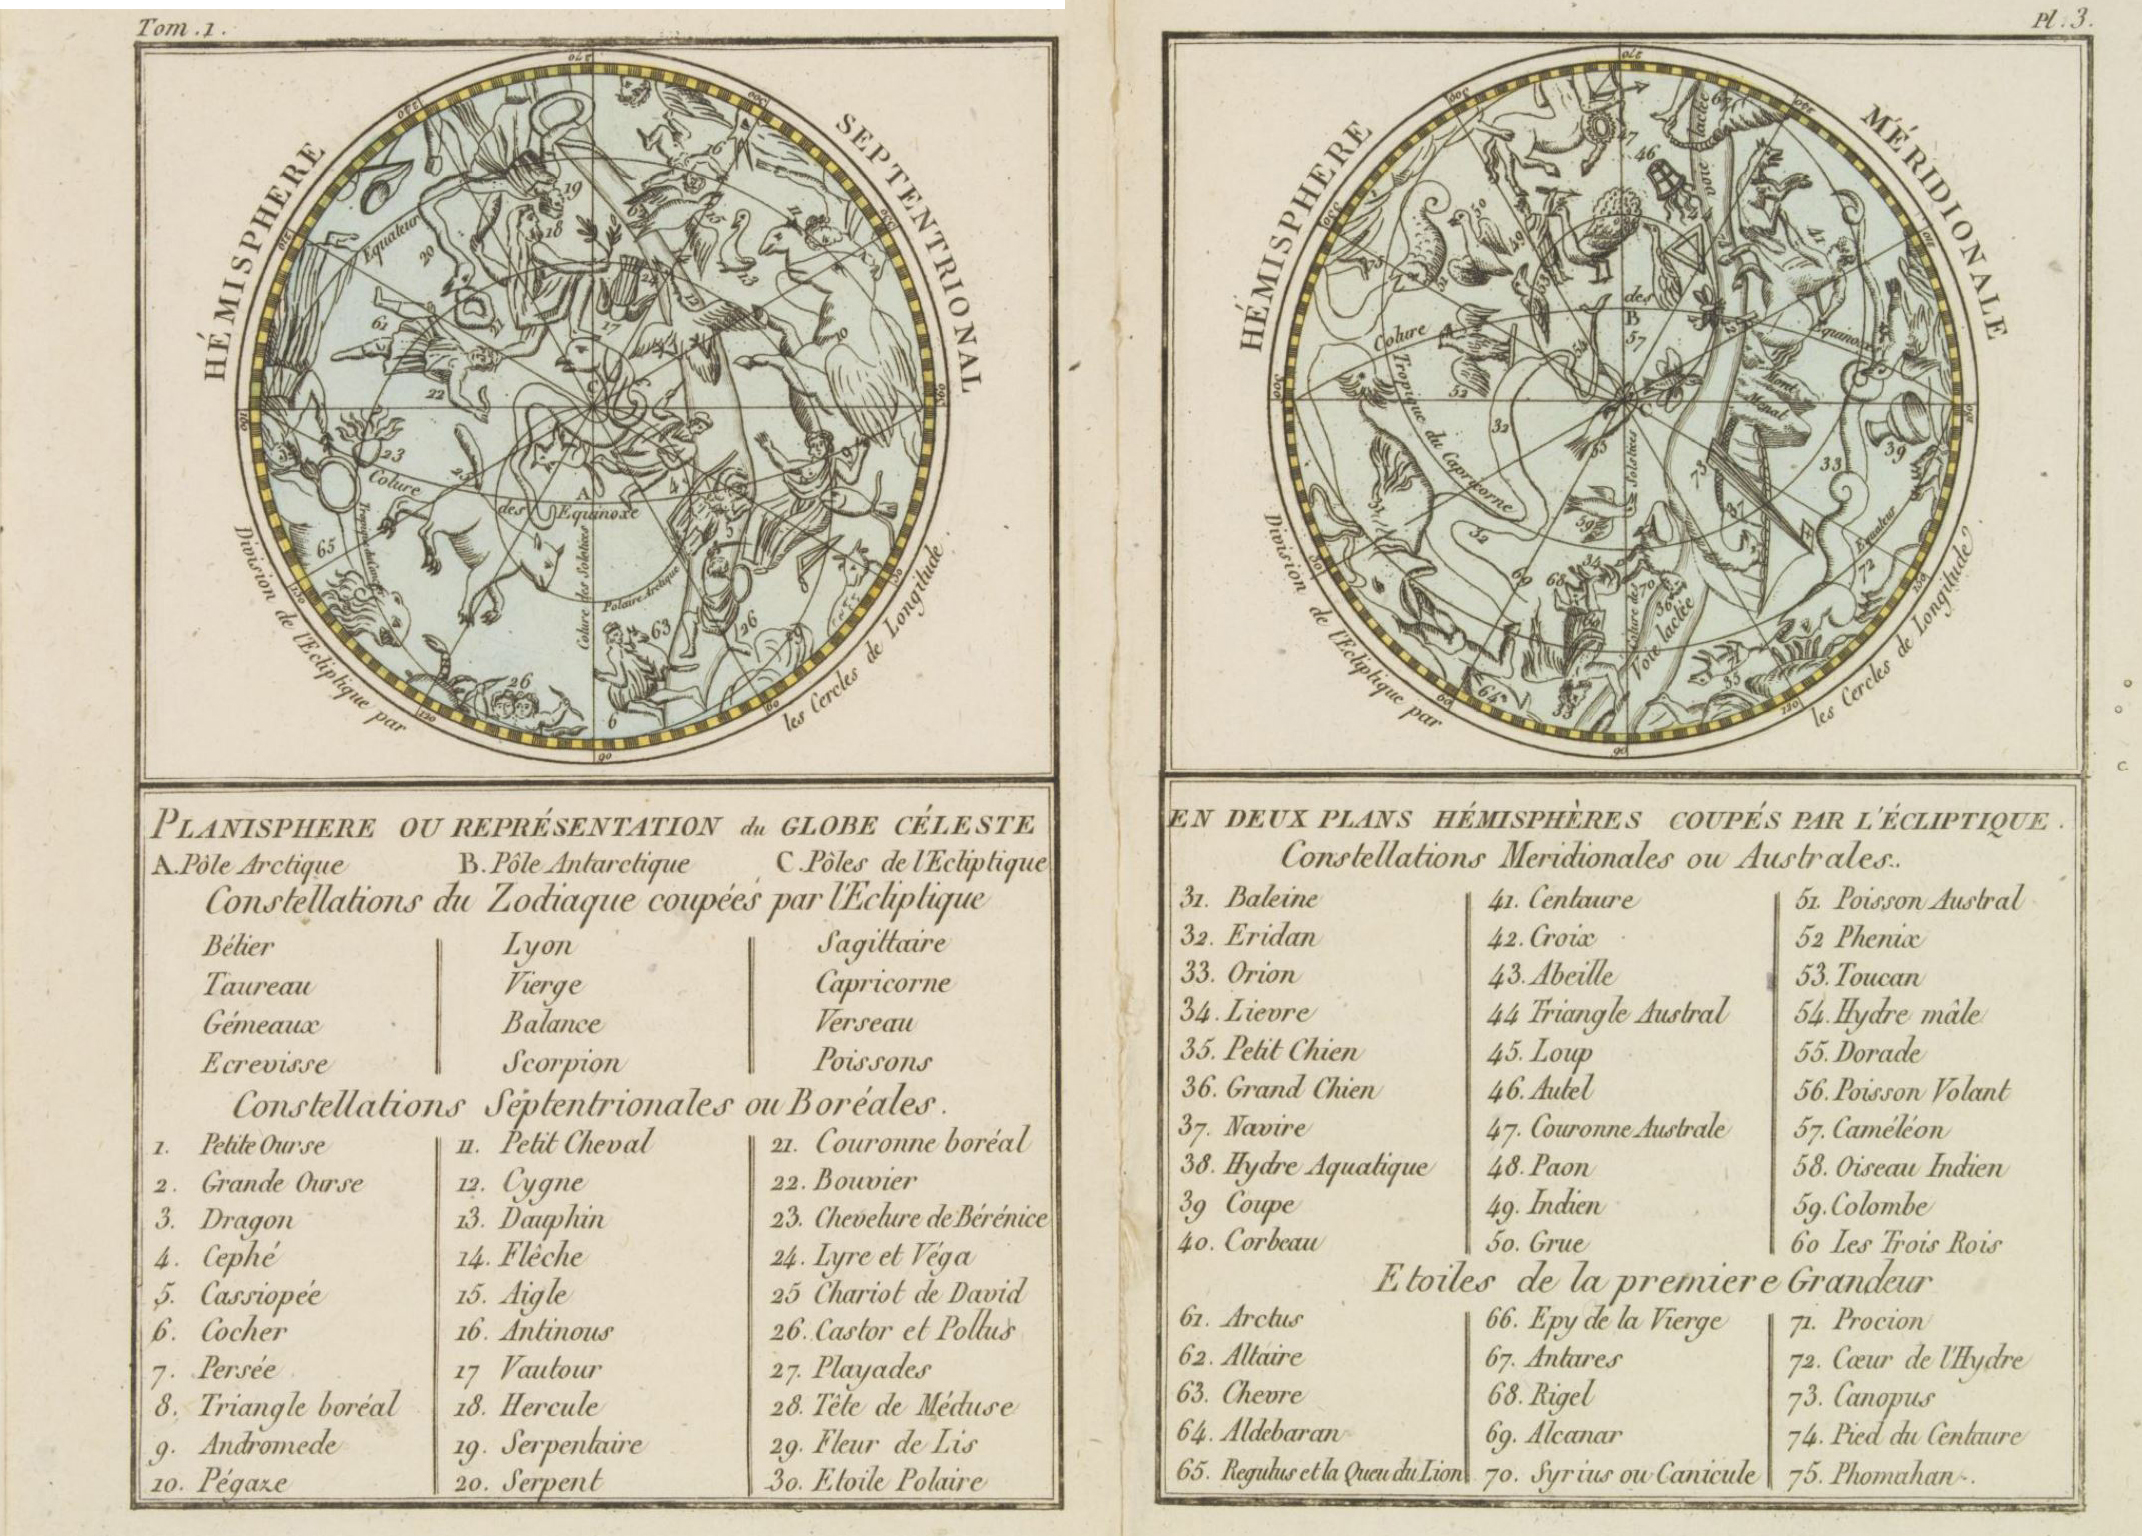 Tom . 1 .
Pl . 3 .
HÉMISPHERE SEPTENTRIONAL
Equateur
Colure des Equinoxe
Colure des Solstices
Polaire Arctique
Division de l'Ecliptique par les Cercles de Longitude .
HÉMISPHERE MÉRIDIONALE
voie lactée
Colure des Equinoxe
Tropique du Capricorne
Solstices
Mont Menal
Equateur
Voie lactée
Division de l'Ecliptique par les Cercles de Longitude
PLANISPHERE OU REPRÉSENTATION du GLOBE CÉLESTE
A. Pôle Arctique B. Pôle Antarctique C. Pôles de l'Ecliptique
Constellations du Zodiaque coupées par l'Ecliptique
Bélier Lyon Sagittaire
Taureau Vierge Capricorne
Gémeaux Balance Verseau
Ecrevisse Scorpion Poissons
Constellations Séptentrionales ou Boréales .
1. Petite Ourse 11. Petit Cheval 21. Couronne boréal
2. Grande Ourse 12. Cygne 22. Bouvier
3. Dragon 13. Dauphin 23. Chevelure de Bérénice
4. Cephé 14. Flêche 24. Lyre et Véga
5. Cassiopée 15. Aigle 25 Chariot de David
6. Cocher 16. Antinous 26. Castor et Pollus
7. Persée 17 Vautour 27. Playades
8. Triangle boréal 18. Hercule 28. Tête de Méduse
9. Andromede 19. Serpentaire 29. Fleur de Lis
10. Pégaze 20. Serpent 30. Etoile Polaire
EN DEUX PLANS HÉMISPHÈRES COUPÉS PAR L'ÉCLIPTIQUE .
Constellations Meridionales ou Australes..
31. Baleine 41. Centaure 51. Poisson Austral
32. Eridan 42. Croix 52 Phenix
33. Orion 43. Abeille 53. Toucan
34. Lievre 44 Triangle Austral 54. Hydre mâle
35. Petit Chien 45. Loup 55. Dorade
36. Grand Chien 46. Autel 56. Poisson Volant
37. Navire 47. Couronne Australe 57. Caméléon
38. Hydre Aquatique 48. Paon 58. Oiseau Indien
39 Coupe 49. Indien 59. Colombe
40. Corbeau 50. Grue 60 Les Trois Rois
Etoiles de la premiere Grandeur
61. Arctus 66. Epy de la Vierge 71. Procion
62. Altaire 67. Antares 72. Cœur de l'Hydre
63. Chevre 68. Rigel 73. Canopus
64. Aldebaran 69. Alcanar 74. Pied du Centaure
65. Regulus et la Queu du Lion 70. Syrius ou Canicule 75. Phomahan .